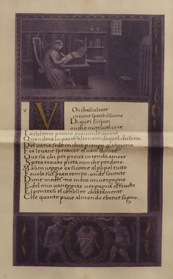 VOi ch ascoltate
in rime sparse il suono
Di quei sospiri
ond io nudriva il core
In sul mio primo giovenile errore
Quand era in parte altr uom da quel ch i sono
Del vario stile in ch io piango et ragiono
Fra le vane speranze e l van dolore
Ove sia chi per prova intenda amore
Spero trovar pieta non che perdono
Ma ben veggio or si come al popol tutto
Favola fui gran tempo onde sovente
Di me medesmo meco mi vergogno
Et del mio vaneggiar vergogna e l frutto
E l pentersi e l conoscer chiaramente
Che quanto piace al mondo e breve sogno